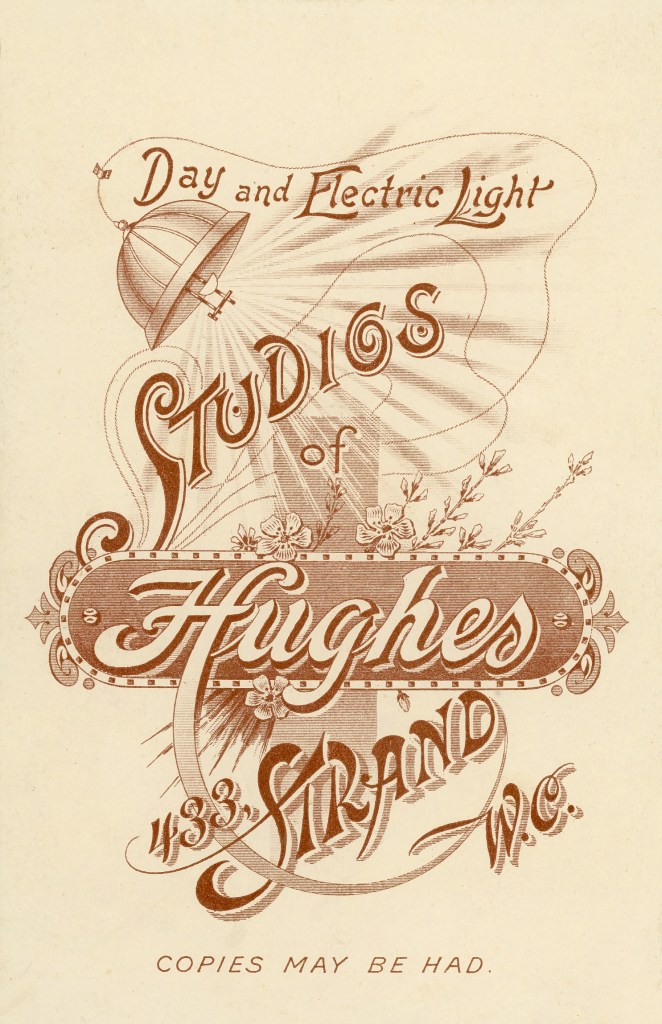 Day and Electric Light
STUDIOS
of
Hughes
433, STRAND W.C.
COPIES MAY BE HAD.